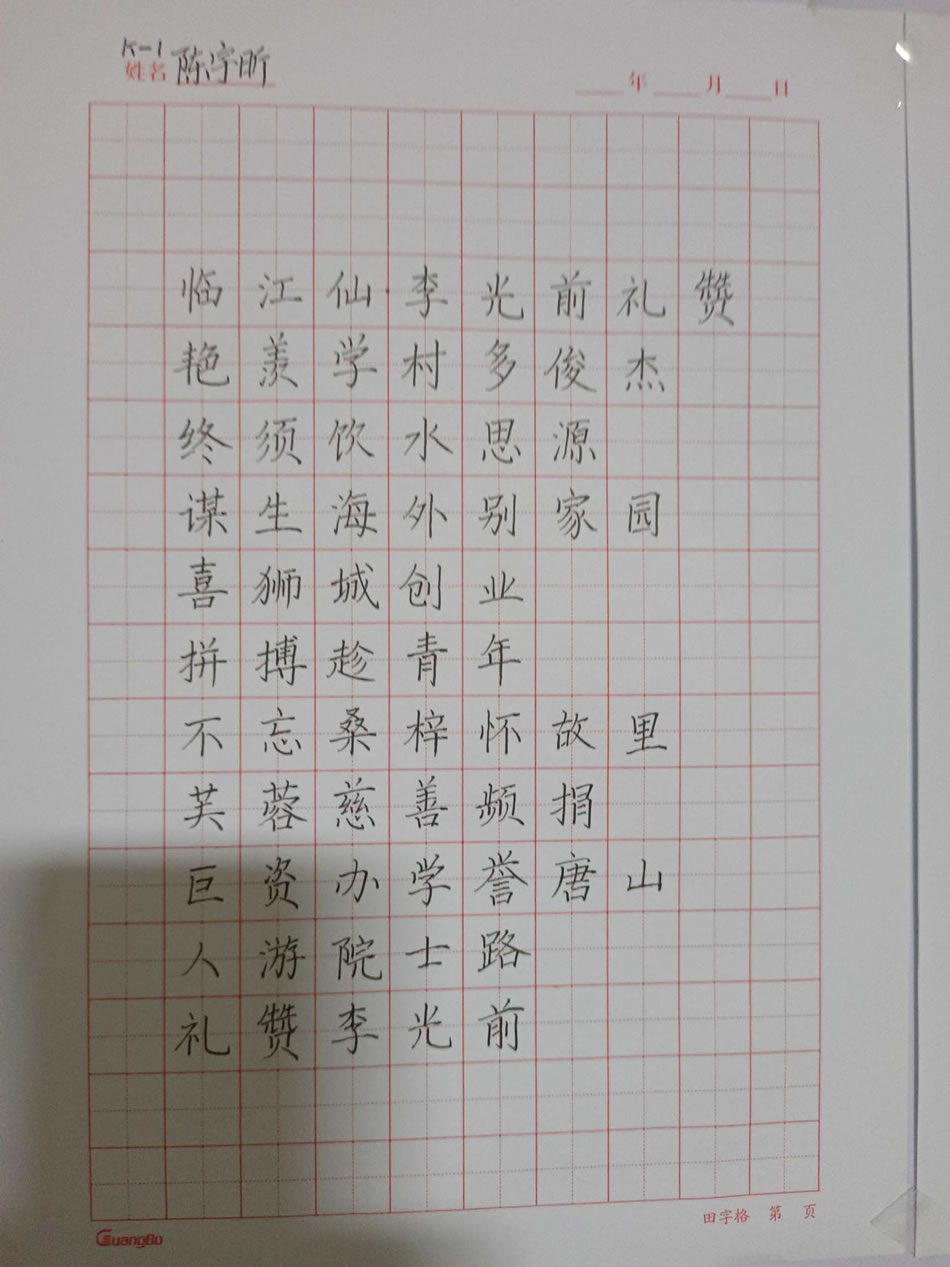 K-1
姓名 陈宇昕
年 月 日
临江仙·李光前礼赞
艳羡学村多俊杰
终须饮水思源
谋生海外别家园
喜狮城创业
拼搏趁青年
不忘桑梓怀故里
芙蓉慈善频捐
巨资办学誉唐山
人游院士路
礼赞李光前
田字格 第 页
GuangBo